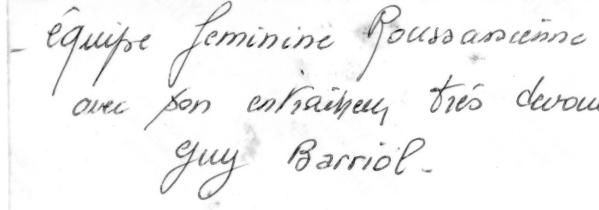 - équipe feminine Roussasienne
avec son entraîneur très devoué
Guy Barriol -